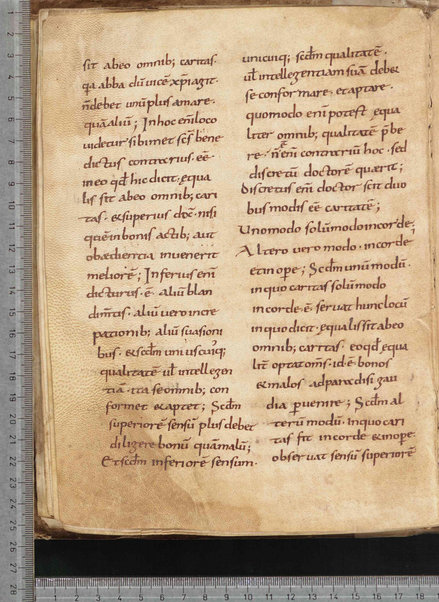 sit abeo omnib; caritas.
qa abba dū uicē xp̄i agit.
n̄ debet unū plus amare.
quā aliū; In hoc enī loco
uidetur sibimet scs̄ bene
dictus contrarius. eē.
in eo qd̄ hic dicit, equa
lis sit abeo omnib; cari
tas. & superius dx̄. nisi
quē in bonis actib; aut
oboedientia inuenerit
meliorē; Inferius enī
dicturus. ē. aliū blan
dim̄tis. aliū uero incre
pationib; aliū suasioni
bus. & scdm̄ uniuscuiq;
qualitatē ul̄ intellegen
tiā. ita se omnib; con
formet & aptet; Scdm̄
superiorē sensū plus debet
diligere bonū quā malū;
Et scdm̄ inferiorē sensum.
unicuiq; scdm̄ qualitatē.
ul̄ intellegentiam suā debet
se conformare. et aptare.
quomodo enī potest equa
liter omnib; qualitatē p̄be
re. n̄ ē enī contrariū hoc. sed
discretū doctorē querit;
Discretus enī doctor scit duo
bus modis eē caritatē;
Uno modo solū modo in corde;
Altero uero modo. in corde
et in ope; Scdm̄ unū modū.
in quo caritas solū modo
in corde. ē. seruat hunc locū
in quo dicit. equalis sit abeo
omnib; caritas. eo qd̄ equa
lit̄ optat om̄s. id. ē. bonos
& malos ad paradisi gau
dia p̄uenire; Scdm̄ al
terū modū. in quo cari
tas fit in corde & in ope.
obseruat sensū superiorē